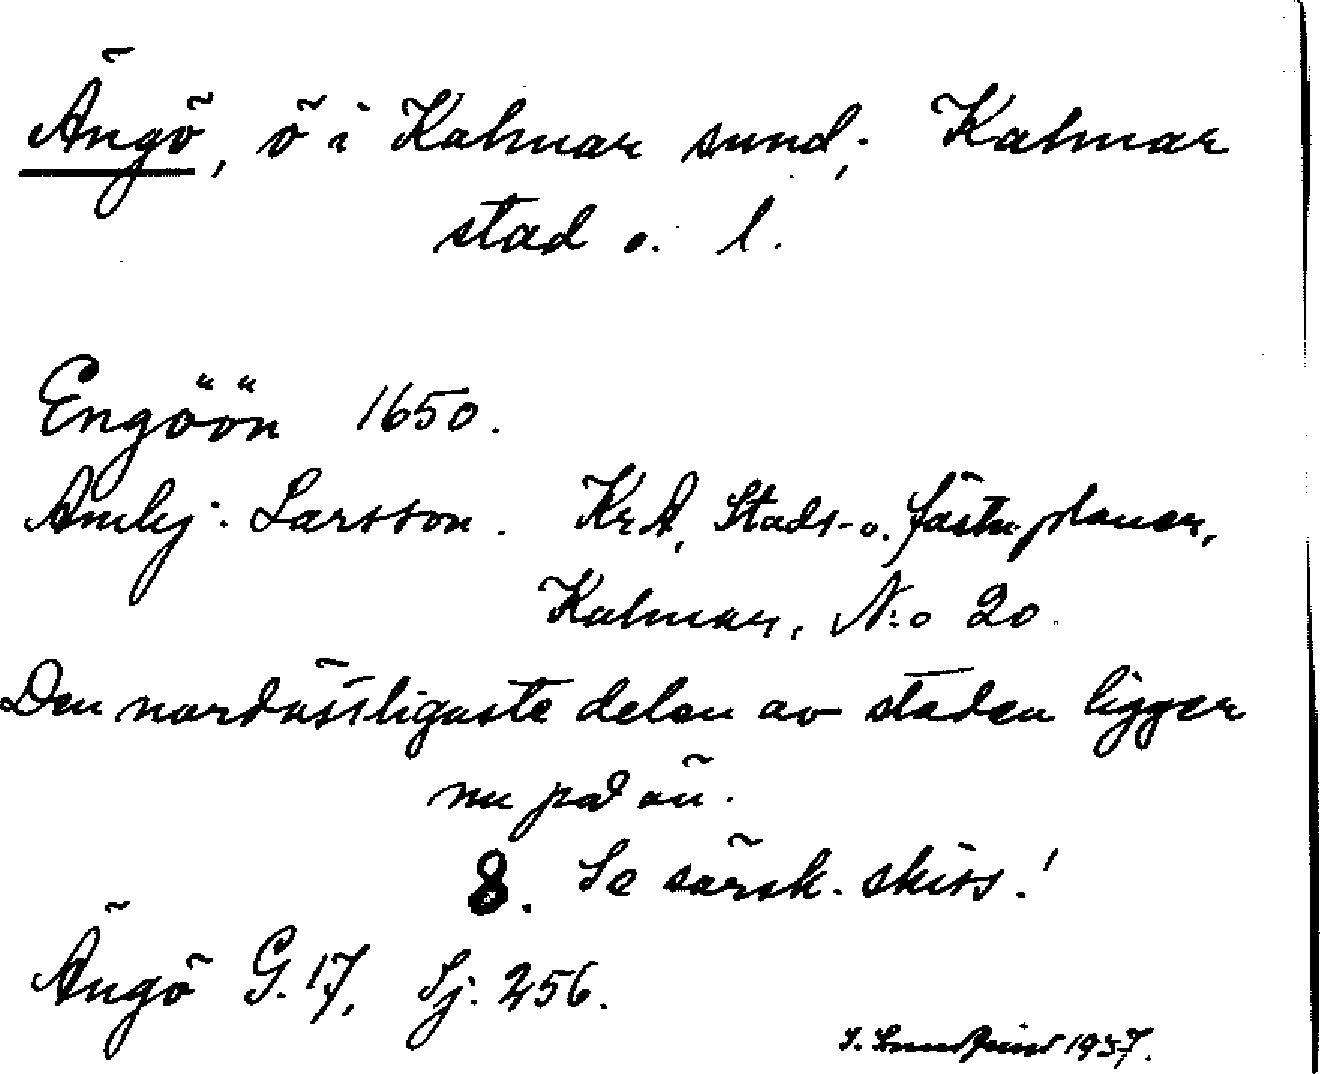 Ängö, ö i Kalmar sund; Kalmar
stad o. l.
Engöön 1650.
Ambj: Larsson. KrA, Stads- o. fästn.planer,
Kalmar, N:o 20.
Den nordöstligaste delen av staden ligger
nu på ön.
8. Se särsk. skiss!
Ängö G. 17, Sj. 256.
1937.